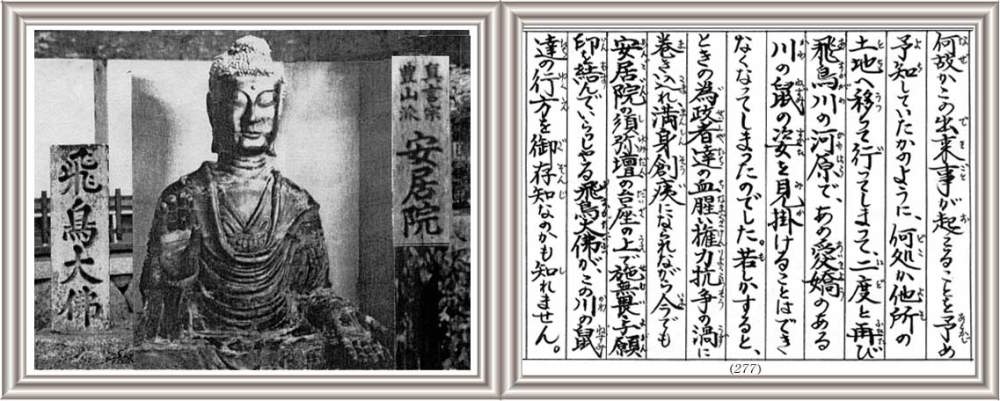 真言宗
豊山派
安居院
飛鳥大佛
何故かこの出来事が起こることを予め
予知していたかのように、何処か他所の
土地へ移って行ってしまって、二度と再び
飛鳥川の河原で、あの愛嬌のある
川の鼠の姿を見掛けることはでき
なくなってしまったのでした。若しかすると、
ときの為政者達の血腥い権力抗争の渦に
巻き込れ、満身創痍になられながら今でも
安居院の須弥壇の台座の上で施無畏与願
印を結んでいらっしゃる飛鳥大佛が、この川の鼠
達の行方を御存知なのかも知れません。
(277)